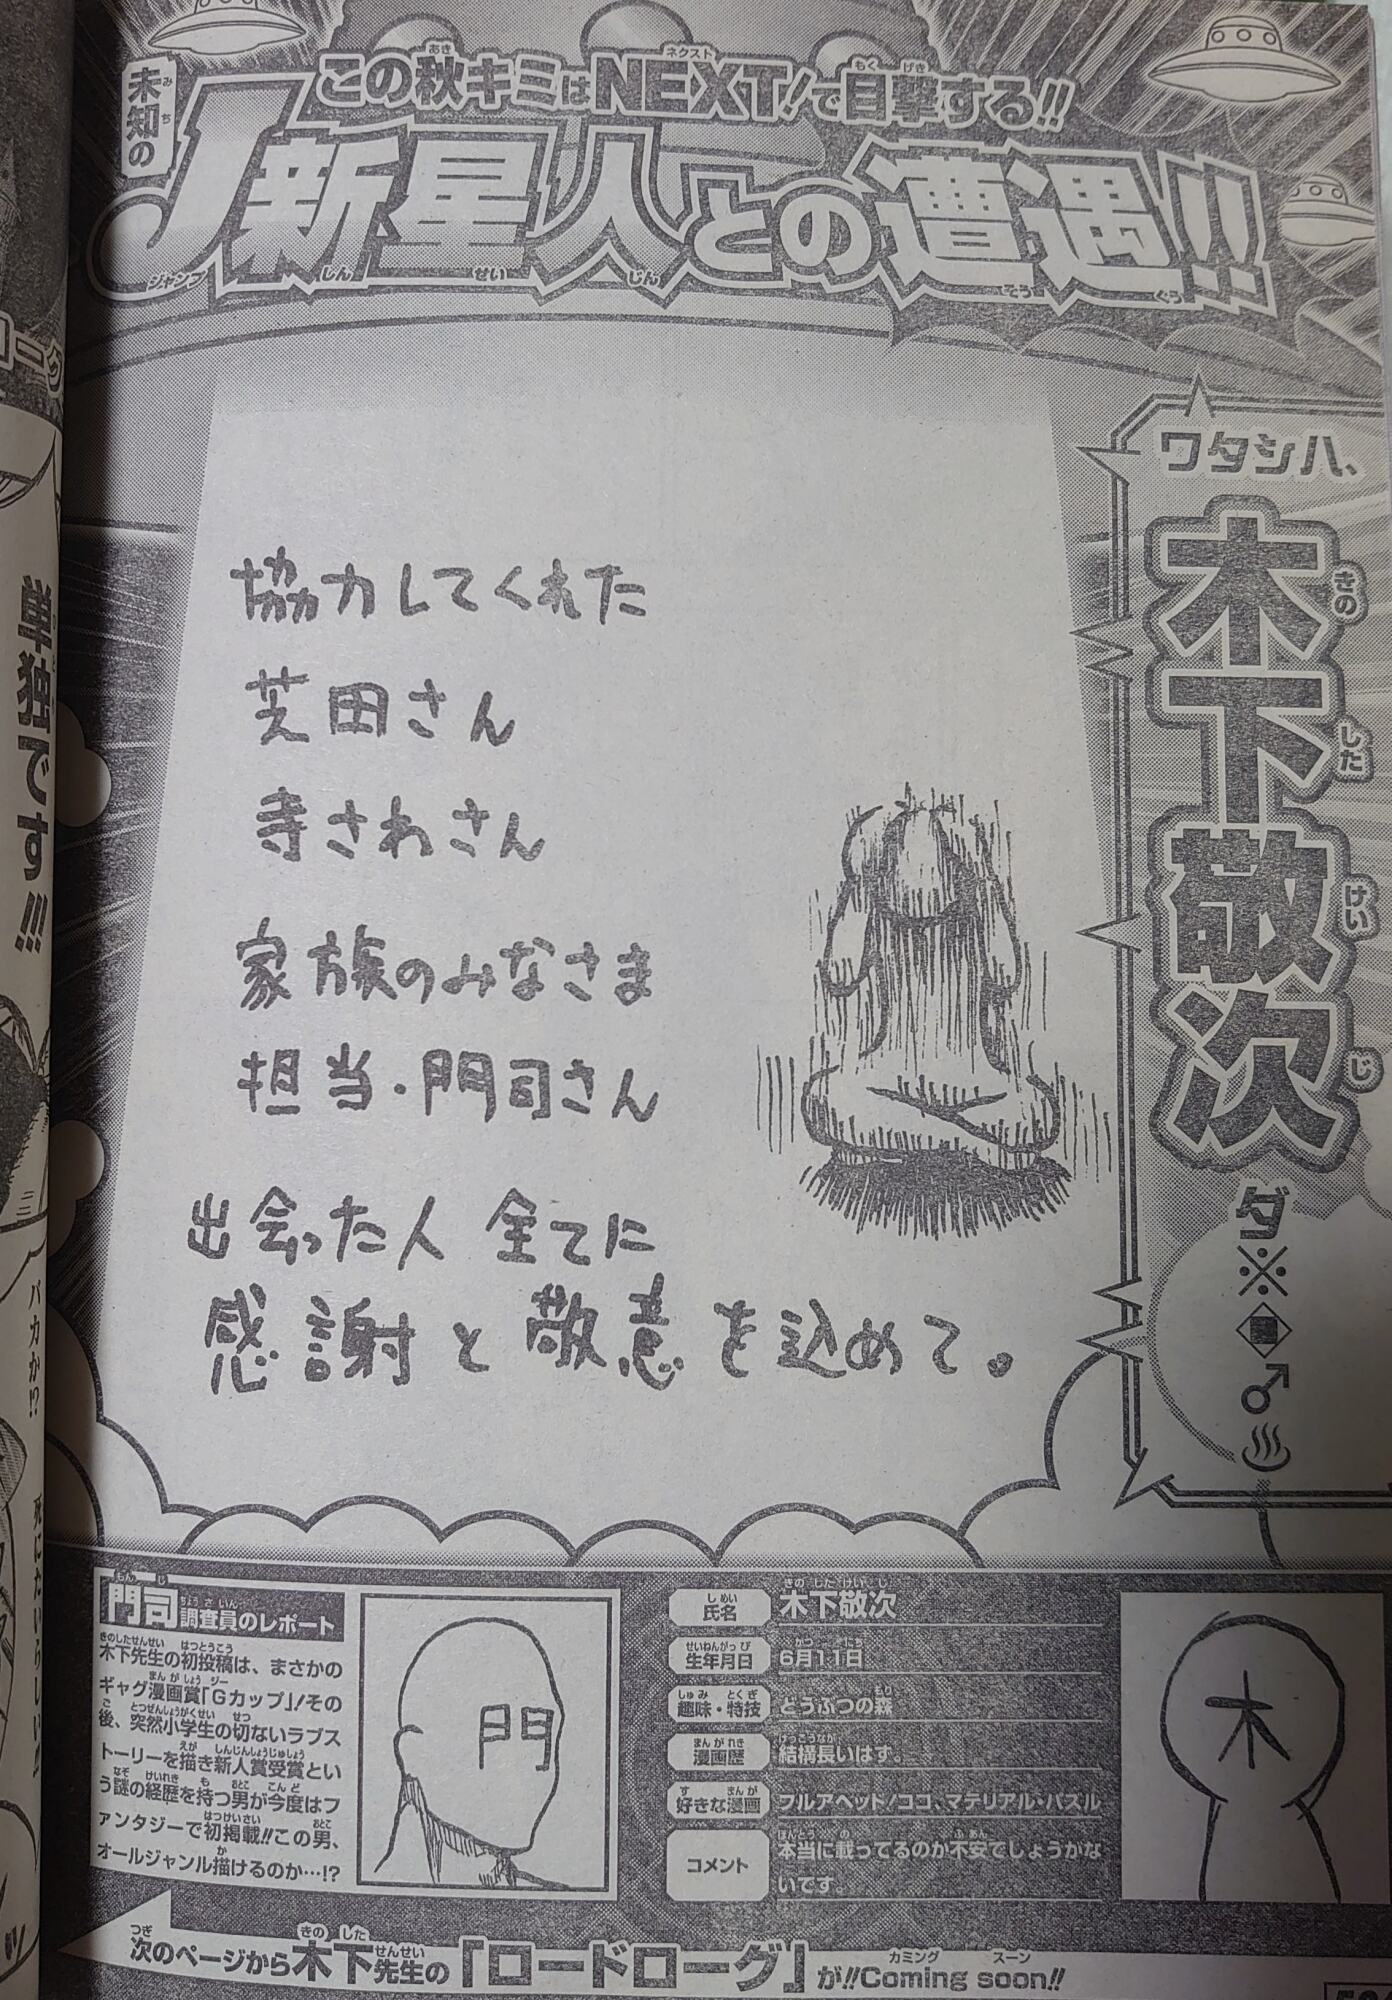 この秋キミはNEXT!で目撃する!!
未知の
J新星人との遭遇!!
ワタシハ、
木下敬次
ダ※
協力してくれた
芝田さん
寺さわさん
家族のみなさま
担当・門司さん
出会った人 全てに
感謝と敬意を込めて。
門司調査員のレポート
木下先生の初投稿は、まさかの
ギャグ漫画賞「Gカップ」!その
後、突然小学生の切ないラブス
トーリーを描き新人賞受賞とい
う謎の経歴を持つ男が今度はフ
ァンタジーで初掲載!!この男、
オールジャンル描けるのか…!?
門
氏名 木下敬次
生年月日 6月11日
趣味・特技 どうぶつの森
漫画歴 結構長いはず。
好きな漫画 フルアヘッド!ココ、マテリアル・パズル
コメント 本当に載ってるのか不安でしょうかな
いです。
木
次のページから木下先生の「ロードローグ」が!!Coming soon!!
単独です!!!
バカか!?